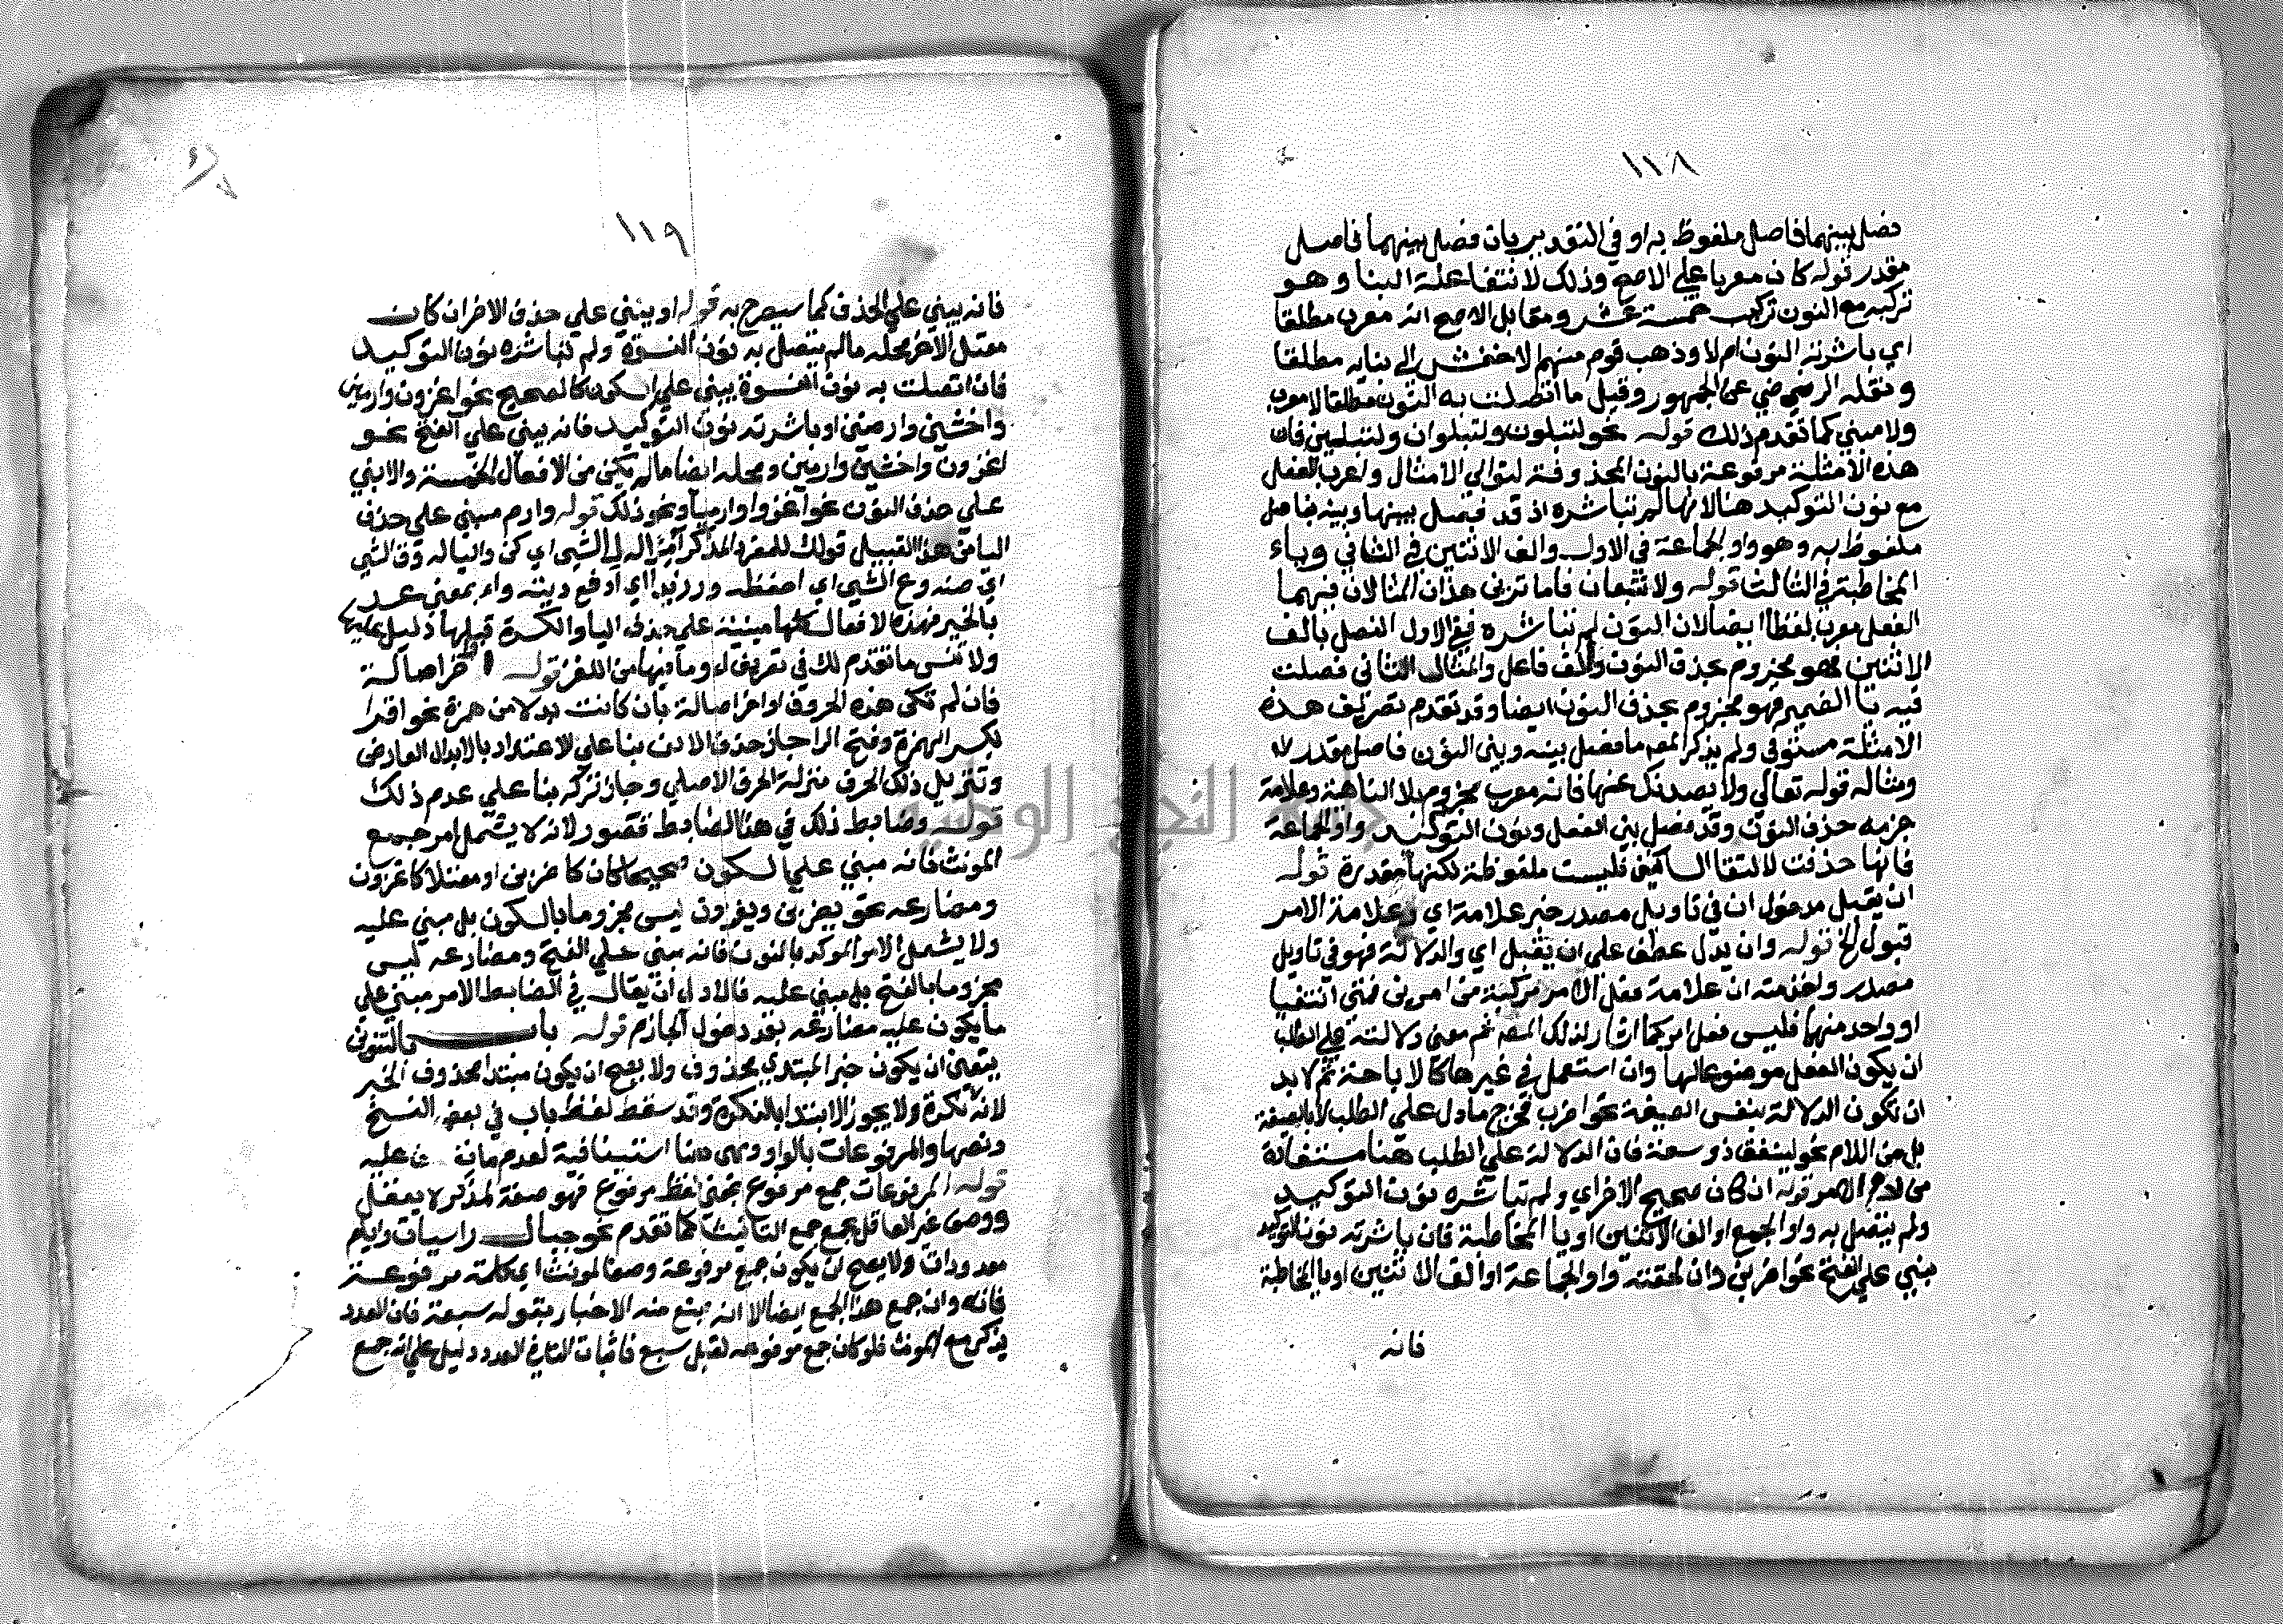 ١١٨
فصل بينهما فاصل ملفوظ به او في التقدير بان فصل بينهما فاصل
مقدر قوله كان معربا علي الاصح وذلك لانتفا علة البنا وهو
تركبه مع النون تركيب خمسة عشر ومقابل الاصح انه معرب مطلقا
اي باشرته النون ام لا وذهب قوم منهم الاخفش الي بنايه مطلقا
ونقله الرضي عن الجمهور وقيل ما اتصلت به النون مطلقا لا معرب
ولا مبني كما تقدم ذلك قوله نحو لتبلون ولتبلوان ولتبلين فان
هذه الامثلة مرفوعة بالنون المحذوفة لتوالي الامثال واعرب الفعل
مع نون التوكيد هنا لانها لم تباشره اذ قد فصل بينها وبينه فاصل
ملفوظ به وهو واو الجماعة في الاول والف الاثنين في الثاني وياء
المخاطبة في الثالث قوله ولا تتبعان فاما ترين هذان المثالان فيهما
الفعل معرب لفظا ايضا لان النون لم تباشره ففي الاول اتصل بالف
الاثنين فهو مجزوم بحذف النون والالف فاعل والمثال الثاني فصلت
فيه يا الضمير فهو مجزوم بحذف النون ايضا وقد تقدم تصريف هذه
الامثلة مستوفي ولم يذكر المص ما فصل بينه وبين النون فاصل مقدر
ومثاله قوله تعالي ولا يصدنك عنها فانه معرب مجزوم بلا الناهية وعلامة
جزمه حذف النون وقد فصل بين الفعل ونون التوكيد واو الجماعة
فانها حذفت لالتقا الساكنين فليست ملفوظة لكنها مقدرة قوله
ان يقبل مدخول ان في تاويل مصدر خبر علامة اي وعلامة الامر
قبول الخ قوله وان يدل عطف علي ان يقبل اي والدلالة فهو في تاويل
مصدر ولخذمته ان علامة فعل الامر مركبة من امرين فمتي انتفيا
او واحد منهما فليس فعل امر كما اشار لذلك المص ثم معني دلالته علي الطلب
ان يكون الفعل موضوعا لها وان استعمل في غيرها كالاباحة ثم لا بد
ان تكون الدلالة بنفس الصيغة نحو اضرب فخرج ما دل علي الطلب لا بالصيغة
بل من اللام نحو لينفق ذو سعة فان الدلالة علي الطلب هنا مستفادة
من لام الامر قوله ان كان صحيح الاخر اي ولم تباشره نون التوكيد
ولم يتصل به واو الجمع او الف الاثنين او يا المخاطبة فان باشرته نون التوكيد
مبني علي الفتح نحو اضربن وان لحقته واو الجماعة او الف الاثنين او يا المخاطبة
فانه
١١٩
فانه يبني علي الحذف كما سيصرح به قوله او يبني علي حذف الاخر ان كان
معتل الاخر محله ما لم يتصل به نون النسوة ولم تباشره نون التوكيد
فان اتصلت به نون النسوة يبني علي السكون كالصحيح نحو اغزون وارمين
واخشين وارضين او باشرته نون التوكيد فانه يبني علي الفتح نحو
اغزون واخشين وارمين ومحله ايضا ما لم يكن من الافعال الخمسة والا بني
علي حذف النون نحو اغزوا وارميا ونحو ذلك قوله وارم مبني علي حذف
اليا من هذا القبيل قولك للمفرد المذكر الشي اي كن واليا له وق الشي
اي صنه وع الشي اي احفظه ود زيدا اي ادفع ديته واء بمعني عد
بالخير فهذه الافعال كلها مبنية علي حذف اليا والكسرة قبلها دليل عليها
ولا تنس ما تقدم لك في تعريف لـ وما فيها من اللغز قوله اخر اصالة
فان لم تكن هذه الحروف اواخر اصالة بان كانت بدلا من همزة نحو اقرا
بكسر الهمزة وفتح الرا جاز حذف الالف بنا علي الاعتداد بالابدال العارض
وتنزيل ذلك الحرف منزلة الحرف الاصلي وجاز تركه بنا علي عدم ذلك
قوله وضابط ذلك في هذا الضابط قصور لانه لا يشمل امر جمع
المونث فانه مبني علي السكون صحيحا كان كاضربن او معتلا كاغزون
ومضارعه نحو يضربن ويغزون ليس مجزوما بالسكون بل مبني عليه
ولا يشمل الامر الموكد بالنون فانه مبني علي الفتح ومضارعه ليس
مجزوما بالفتح بل مبني عليه فالاولي ان يقال في الضابط الامر مبني علي
ما يكون عليه مضارعه بعد دخول الجازم قوله باب بالتنوين
يتعين ان يكون خبر المبتدي محذوف ولا يصح ان يكون مبتدا محذوف الخبر
لانه نكرة ولا يجوز الابتدا بالنكرة وقد سقط لفظ باب في بعض النسخ
ونصها والمرفوعات بالواو وهي هنا استينافية لعدم ما عليه
قوله المرفوعات جمع مرفوع بمعني لفظ مرفوع فهو صفة لمذكر لا يعقل
ووصف غير العاقل يجمع جمع التانيث كما تقدم نحو جبال راسيات وايام
معدودات ولا يصح ان يكون جمع مرفوعة وصفا لمونث اي كلمة مرفوعة
فانه وان جمع هذا الجمع ايضا الا انه يمنع منه الاخبار بقوله سبعة فان العدد
يذكر مع المونث فلو كان جمع مرفوعه لقيل سبع فاثبات التا في العدد دليل علي انه جمع